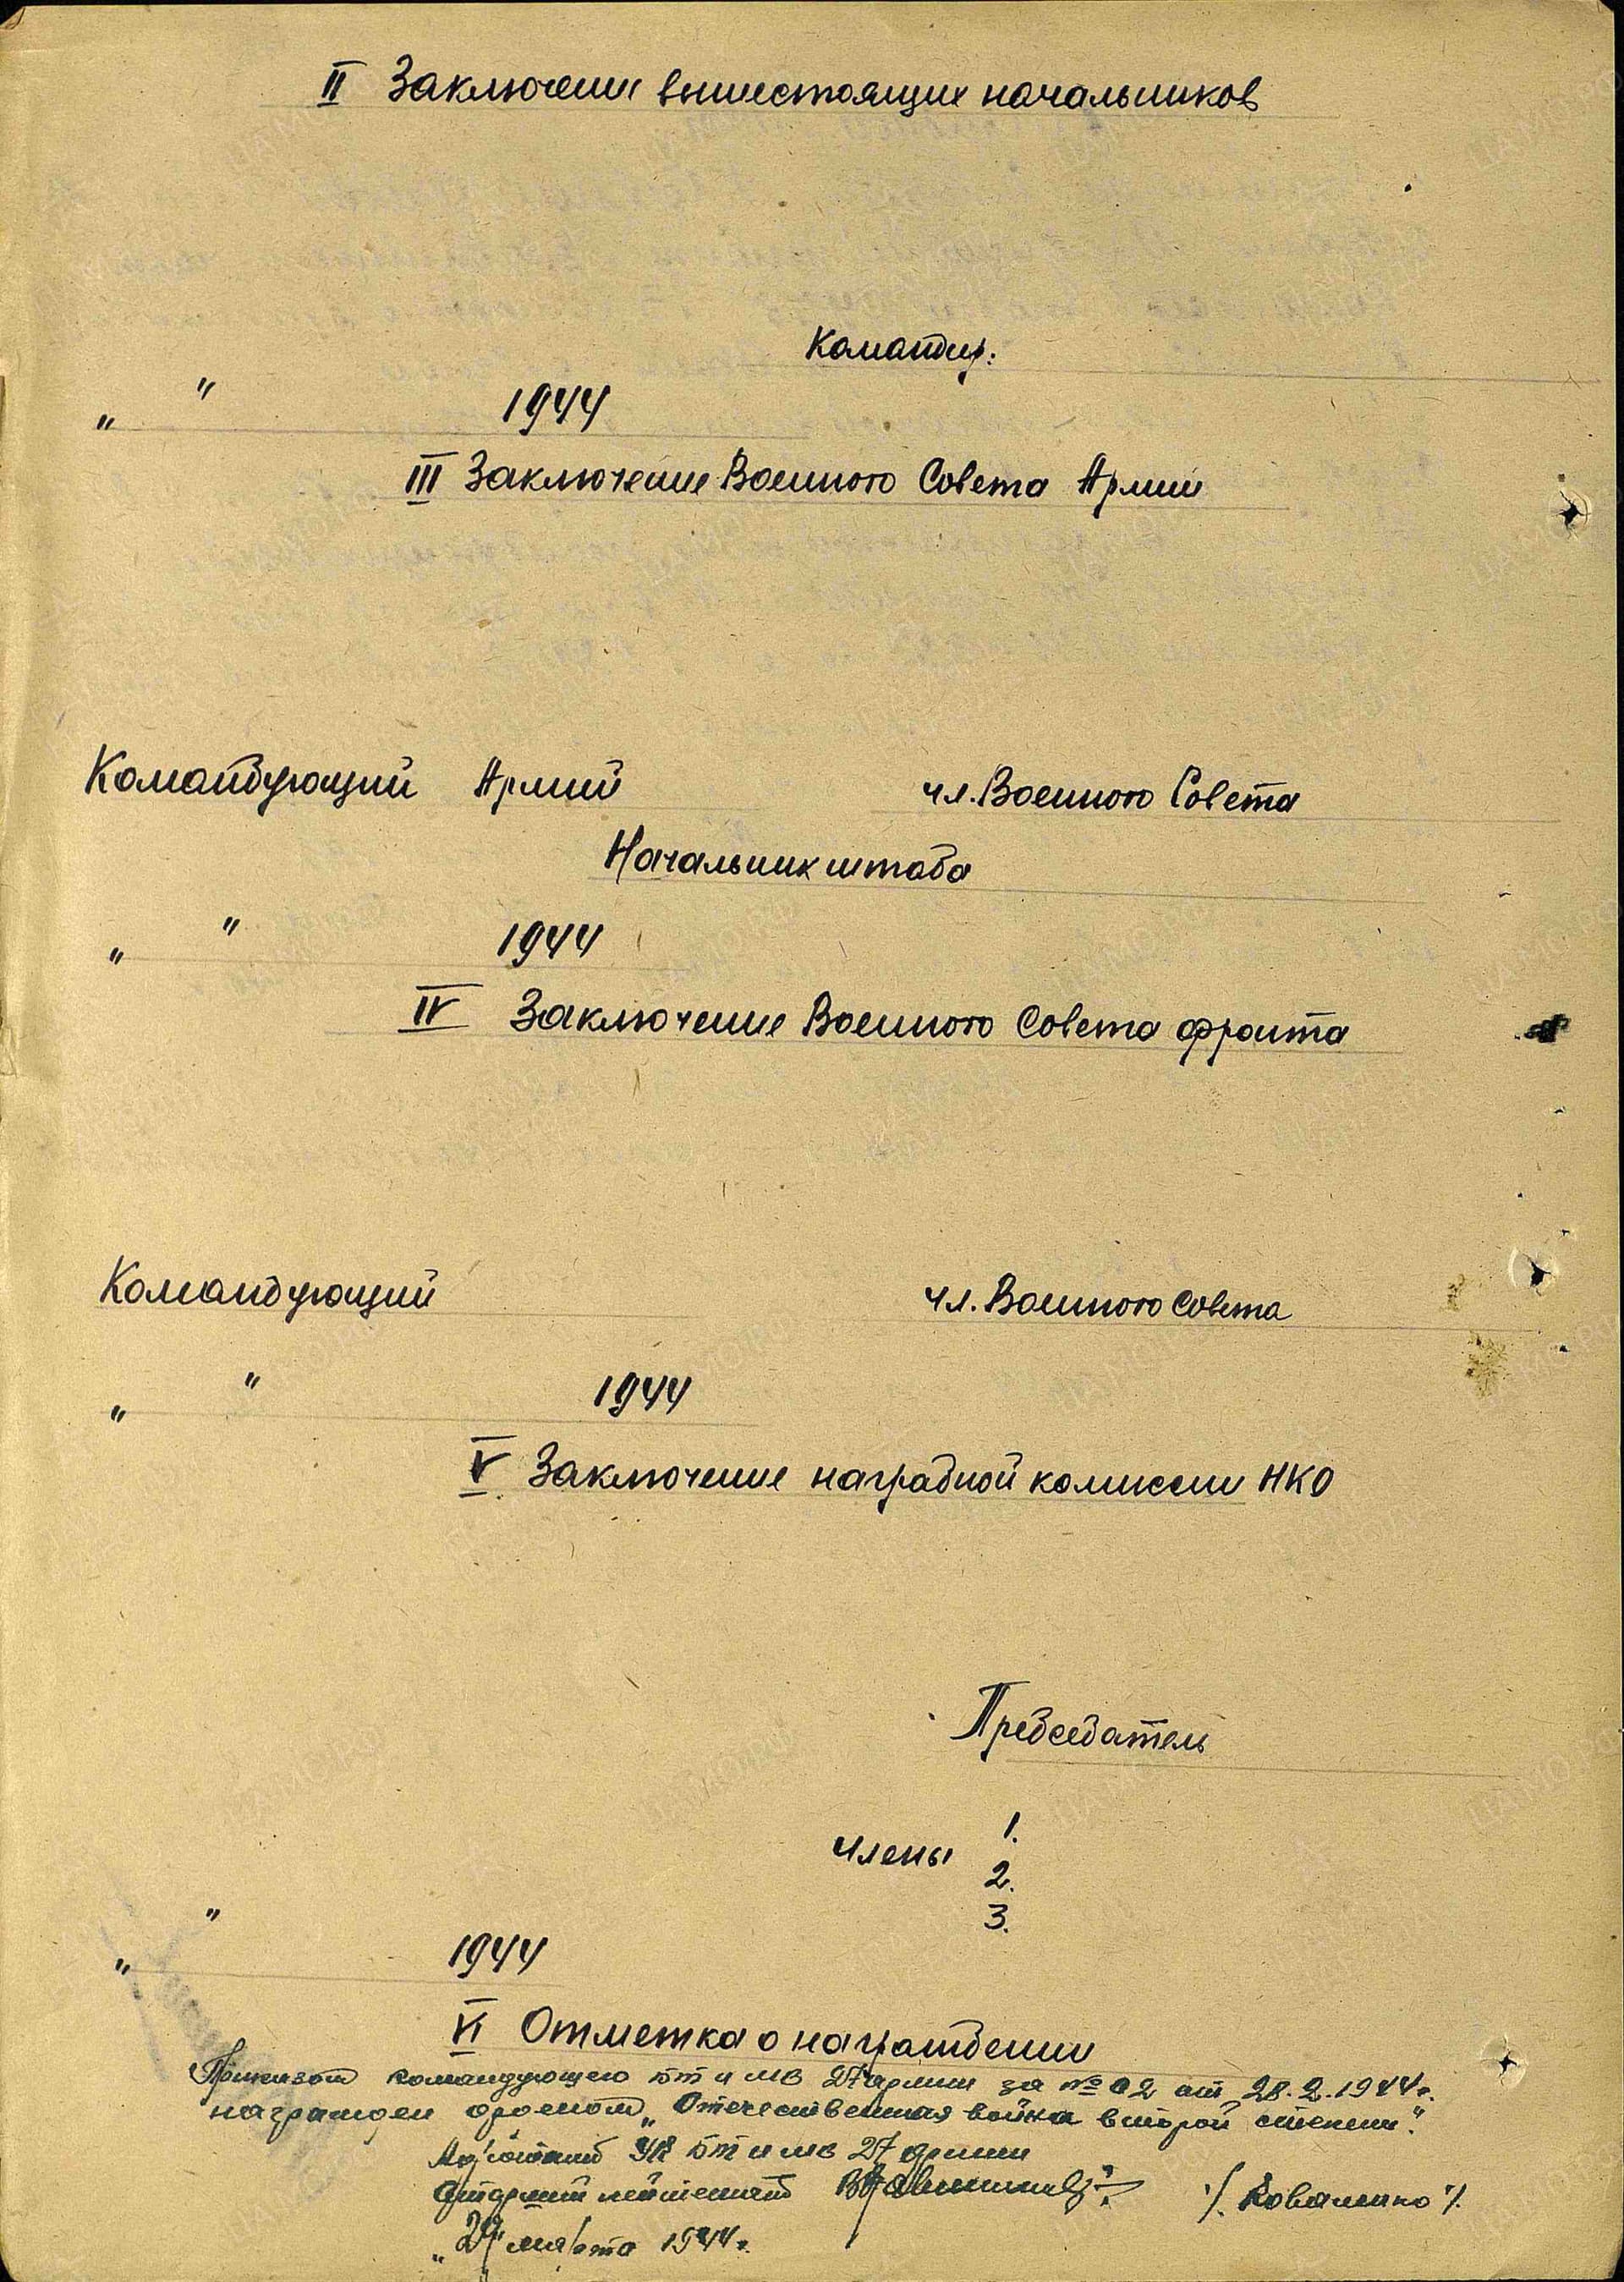 II Заключение вышестоящих начальников
Командир:
" " 1944
III Заключение Военного Совета Армии
Командующий Армией чл. Военного Совета
Начальник штаба
" " 1944
IV Заключение Военного Совета фронта
Командующий чл. Военного Совета
" " 1944
V Заключение наградной комиссии НКО
Председатель
Члены 1.
2.
3.
" " 1944
VI Отметка о награждении
Приказом командующего БТ и МВ 27 армии за № 02 от 28.2.1944 г.
награжден орденом „Отечественная война второй степени".
Адъютант УК БТ и МВ 27 армии
Старший лейтенант /. Коваленко ./
„29" марта 1944 г.